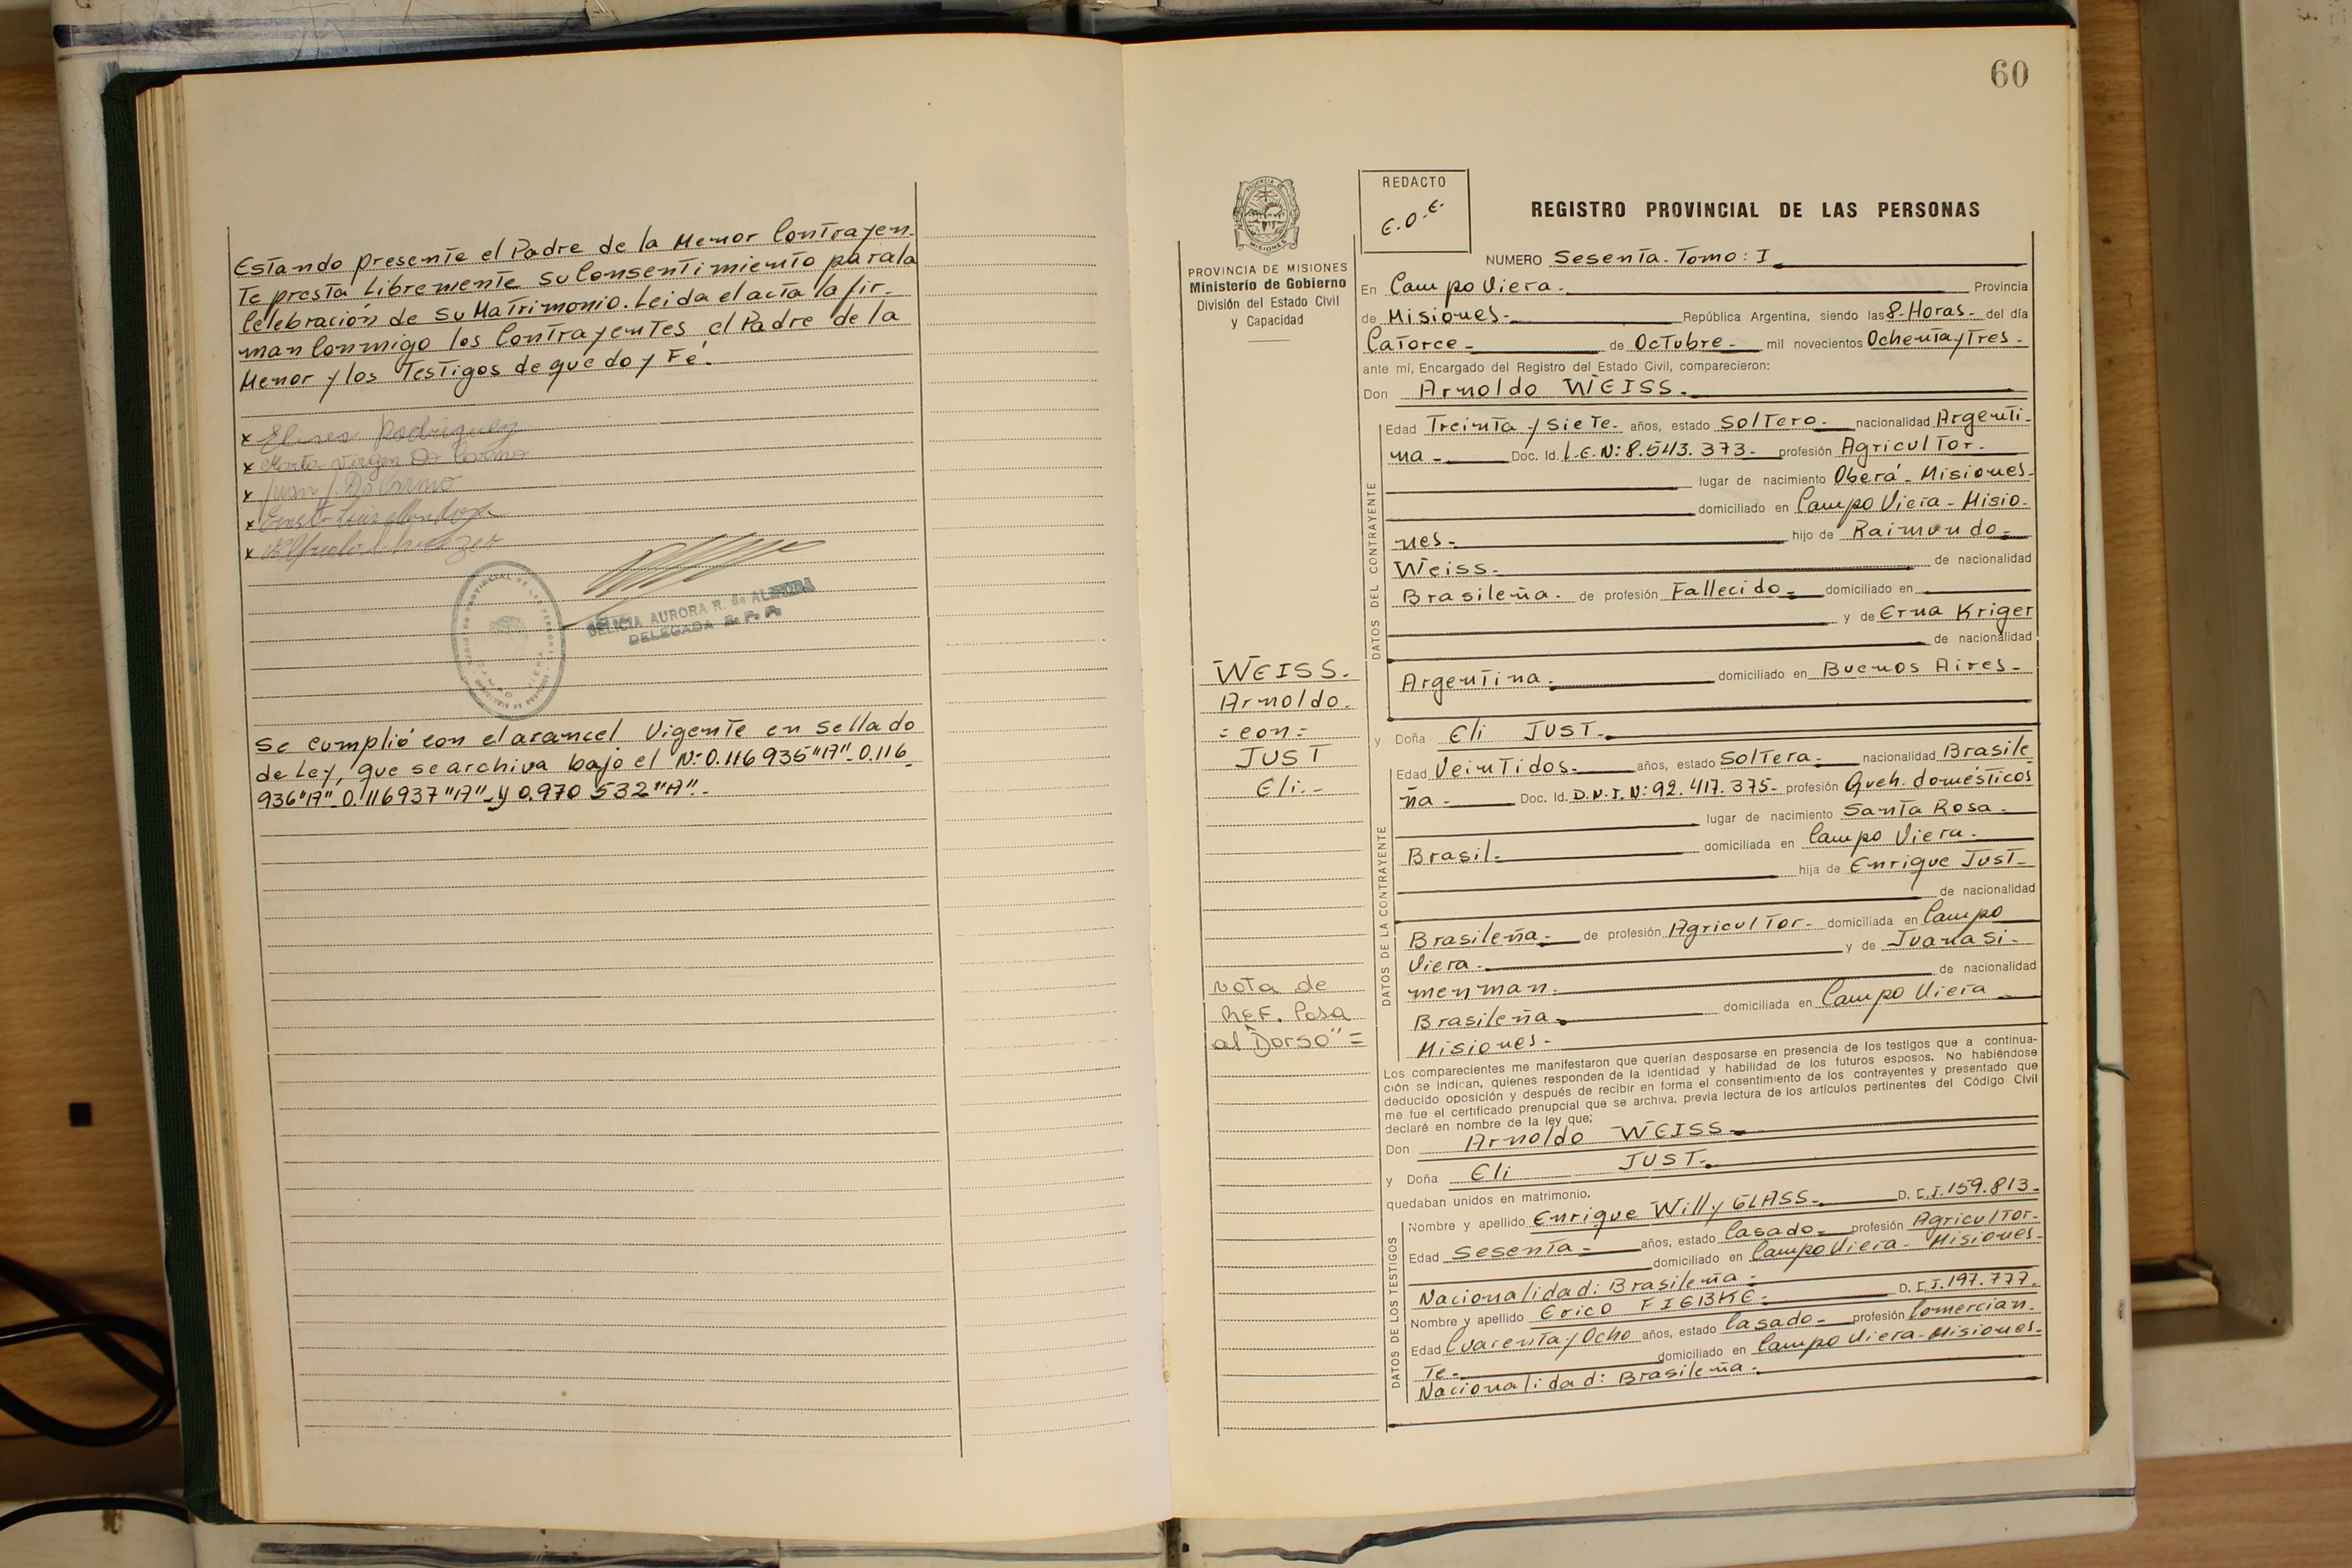 Estando presente el Padre de la Menor Contrayen-
Te presta Libremente su Consentimiento para la
Celebración de su Matrimonio. Leida el acta la fir-
man Conmigo los Contrayentes el Padre de la
Menor y los Testigos de que doy Fé.
x Eliseo Rodriguez
x Marta Virgen Do Carmo
x Juan J. Do Carmo
x Luis Mendoza
x
REGISTRO PROVINCIAL DE LAS PERSONAS
CAMPO VIERA
DELICIA AURORA R. de ALMEIDA
DELEGADA R. P. P.
Se cumplió con el arancel Vigente en Sellado
de Ley, que se archiva bajo el N:0.116935"A"-0.116.
936"A"-0.116937"A"-y 0.970 532"A".-
60
PROVINCIA DE MISIONES
PROVINCIA DE MISIONES
Ministerio de Gobierno
División del Estado Civil
y Capacidad
WEISS.
Arnoldo.
=con=
JUST
Eli.-
nota de
REF. Pasa
al "Dorso" =
REDACTO
E.O.E.
REGISTRO PROVINCIAL DE LAS PERSONAS
NUMERO Sesenta. Tomo: I
En Campo Viera. Provincia
de Misiones- República Argentina, siendo las 8-Horas- del día
Catorce - de Octubre - mil novecientos Ochenta y Tres -
ante mí, Encargado del Registro del Estado Civil, comparecieron:
Don Arnoldo WEISS.
DATOS DEL CONTRAYENTE
Edad Treinta y Siete- años, estado Soltero. nacionalidad Argenti-
na - Doc. Id. L.E.N:8.543.373- profesión Agricultor.
lugar de nacimiento Oberá- Misiones-
domiciliado en Campo Viera - Misio-
nes. hijo de Raimundo
Weiss. de nacionalidad
Brasileña. de profesión Fallecido domiciliado en
y de Erna Kriger
de nacionalidad
Argentina. domiciliado en Buenos Aires-
y Doña Eli JUST.
DATOS DE LA CONTRAYENTE
Edad Veintidos. años, estado Soltera. nacionalidad Brasile
ña - Doc. Id. D.N.I.N:92.417.375- profesión Queh. domésticos
lugar de nacimiento Santa Rosa -
Brasil. domiciliada en Campo Viera.
hija de Enrique Just-
de nacionalidad
Brasileña. de profesión Agricultor- domiciliada en Campo
Viera. y de Juana Si-
menman. de nacionalidad
Brasileña. domiciliada en Campo Viera
Misiones-
Los comparecientes me manifestaron que querían desposarse en presencia de los testigos que a continua-
ción se indican, quienes responden de la identidad y habilidad de los futuros esposos. No habiéndose
deducido oposición y después de recibir en forma el consentimiento de los contrayentes y presentado que
me fue el certificado prenupcial que se archiva, previa lectura de los artículos pertinentes del Código Civil
declaré en nombre de la ley que;
Don Arnoldo WEISS
y Doña Eli JUST.
quedaban unidos en matrimonio.
DATOS DE LOS TESTIGOS
Nombre y apellido Enrique Willy GLASS. D. C.I.159.813-
Edad Sesenta - años, estado Casado- profesión Agricultor-
domiciliado en Campo Viera- Misiones-
Nacionalidad: Brasileña -
Nombre y apellido Erico FIEBKE. D. C.I.197.777-
Edad Cuarenta y Ocho años, estado Casado- profesión Comercian-
Te- domiciliado en Campo Viera-Misiones-
Nacionalidad: Brasileña-